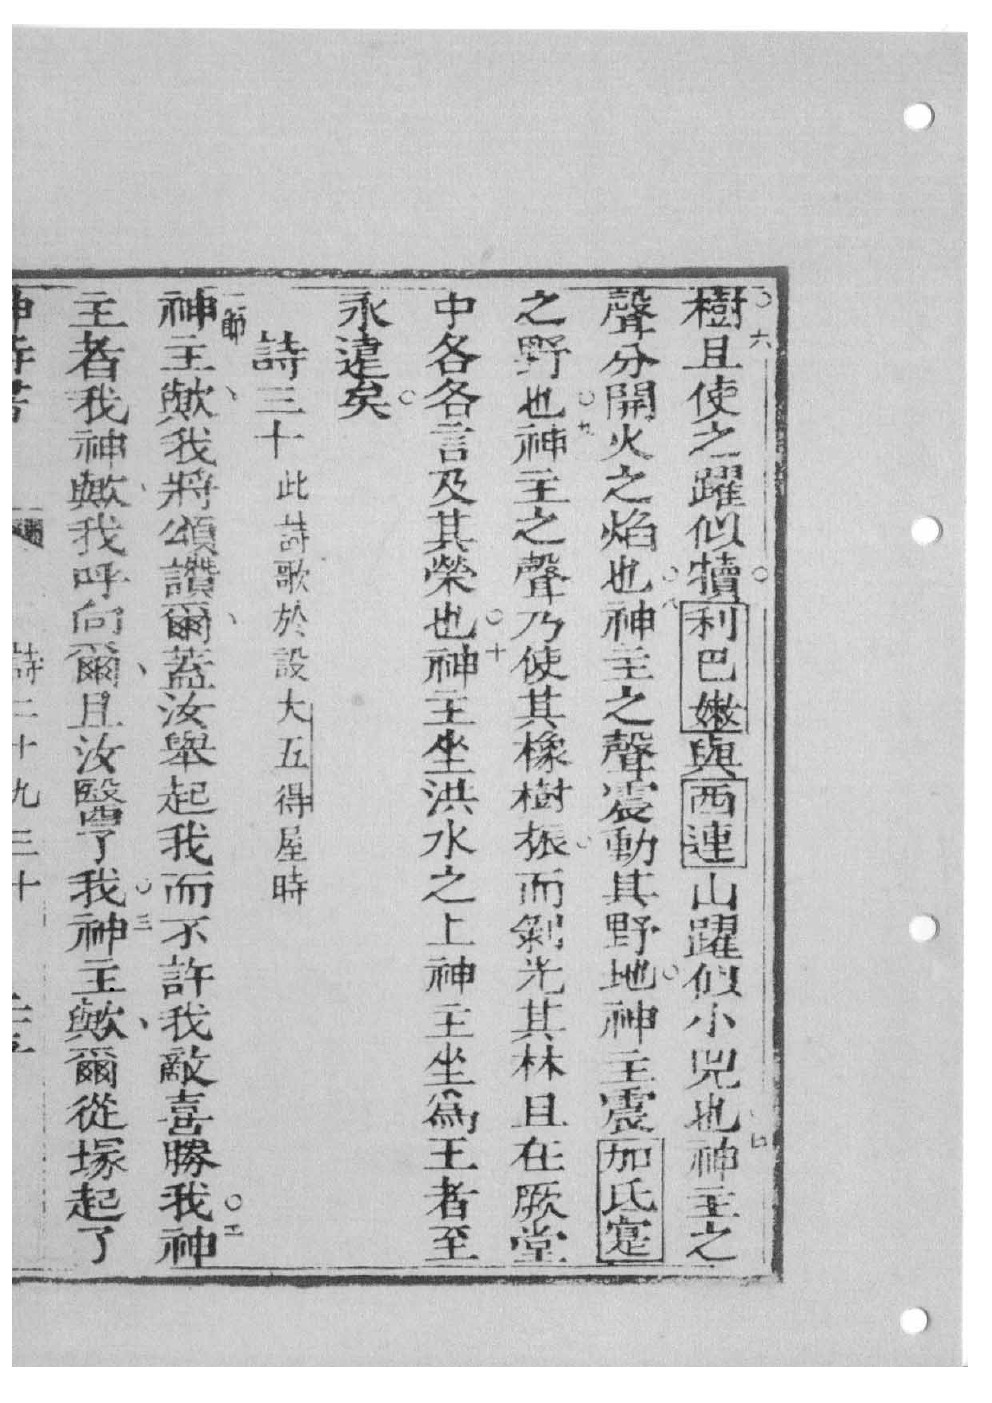 樹且使之躍似犢利巴嫩與西連山躍似小兕也神主之
聲分開火之焰也神主之聲震動其野地神主震加氏寔
之野也神主之聲乃使其橡樹振而剝光其林且在厥堂
中各各言及其榮也神主坐洪水之上神主坐為王者至
永遠矣
詩三十此詩歌於設大五得屋時
神主歟我將頌讚爾蓋汝舉起我而不許我敵喜勝我神
主者我神歟我呼向爾且汝醫了我神主歟爾從塚起了
詩二十九三十
六
七
八
九
十
節
二
三